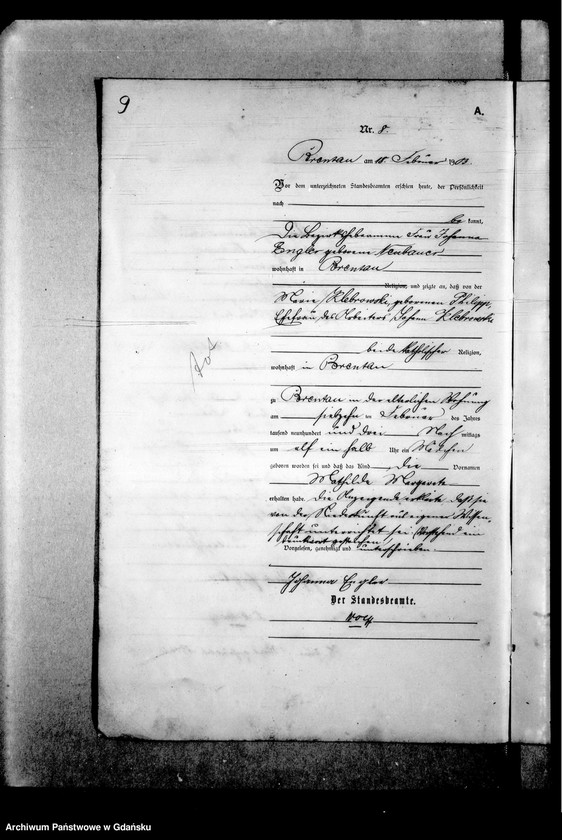 9
A.
Nr. 8.
Brentau am 18 Februar 1903.
Vor dem unterzeichneten Standesbeamten erschien heute, der Persönlichkeit
nach
be kannt,
Die Bezirkshebamme Frau Johanna
Engler geborene Neubauer
wohnhaft in Brentau
Religion, und zeigte an, daß von der
Marie Klebrowski, geborenen Philipp,
Ehefrau des Arbeiters Johann Klebrowski
beide katholischer Religion,
wohnhaft in Brentau
zu Brentau in der elterlichen Wohnung
am siebzehn ten Februar des Jahres
tausend neunhundert und drei Nach mittags
um elf ein halb Uhr ein Mädchen
geboren worden sei und daß das Kind die Vornamen
Mathilde Margarete
erhalten habe. Die Anzeigende erklärte, daß sie
von der Niederkunft aus eigener Wissen-
schaft unterrichtet sei. Vorstehend ein
Druckwort gestrichen.
Vorgelesen, genehmigt und unterschrieben
Johanna Engler
Der Standesbeamte.